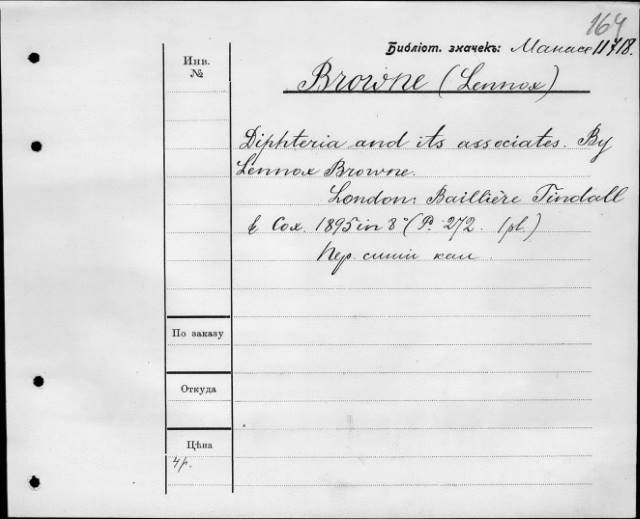 164
Библіот. значекъ: Манасе 11718.
Инв. №
Browne (Lennox)
Diphteria and its associates. By
Lennox Browne.
London: Baillière Tindall
& Cox. 1895 in 8° (P. 272. 1pl.)
Пер. синій кал
По заказу
Откуда
Цѣна
4р.